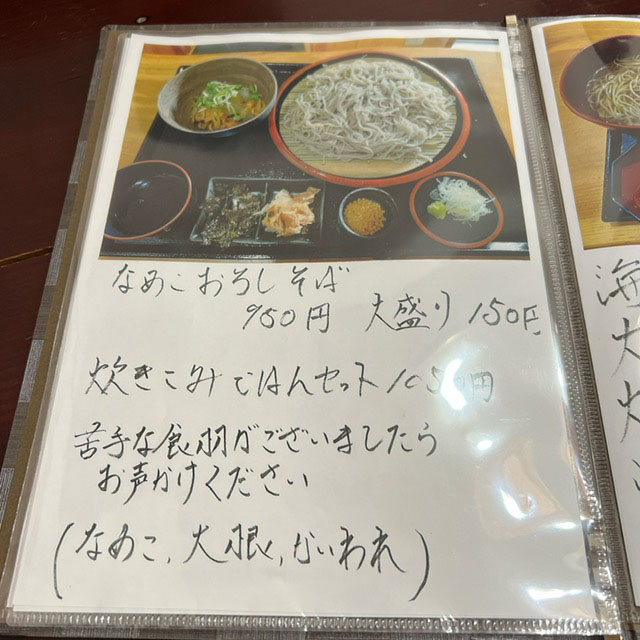 なめこおろしそば
950円 大盛り150円
炊きこみごはんセット1050円
苦手な食羽がございましたら
お声がけください
(なめこ,大根,かいわれ)
海
大